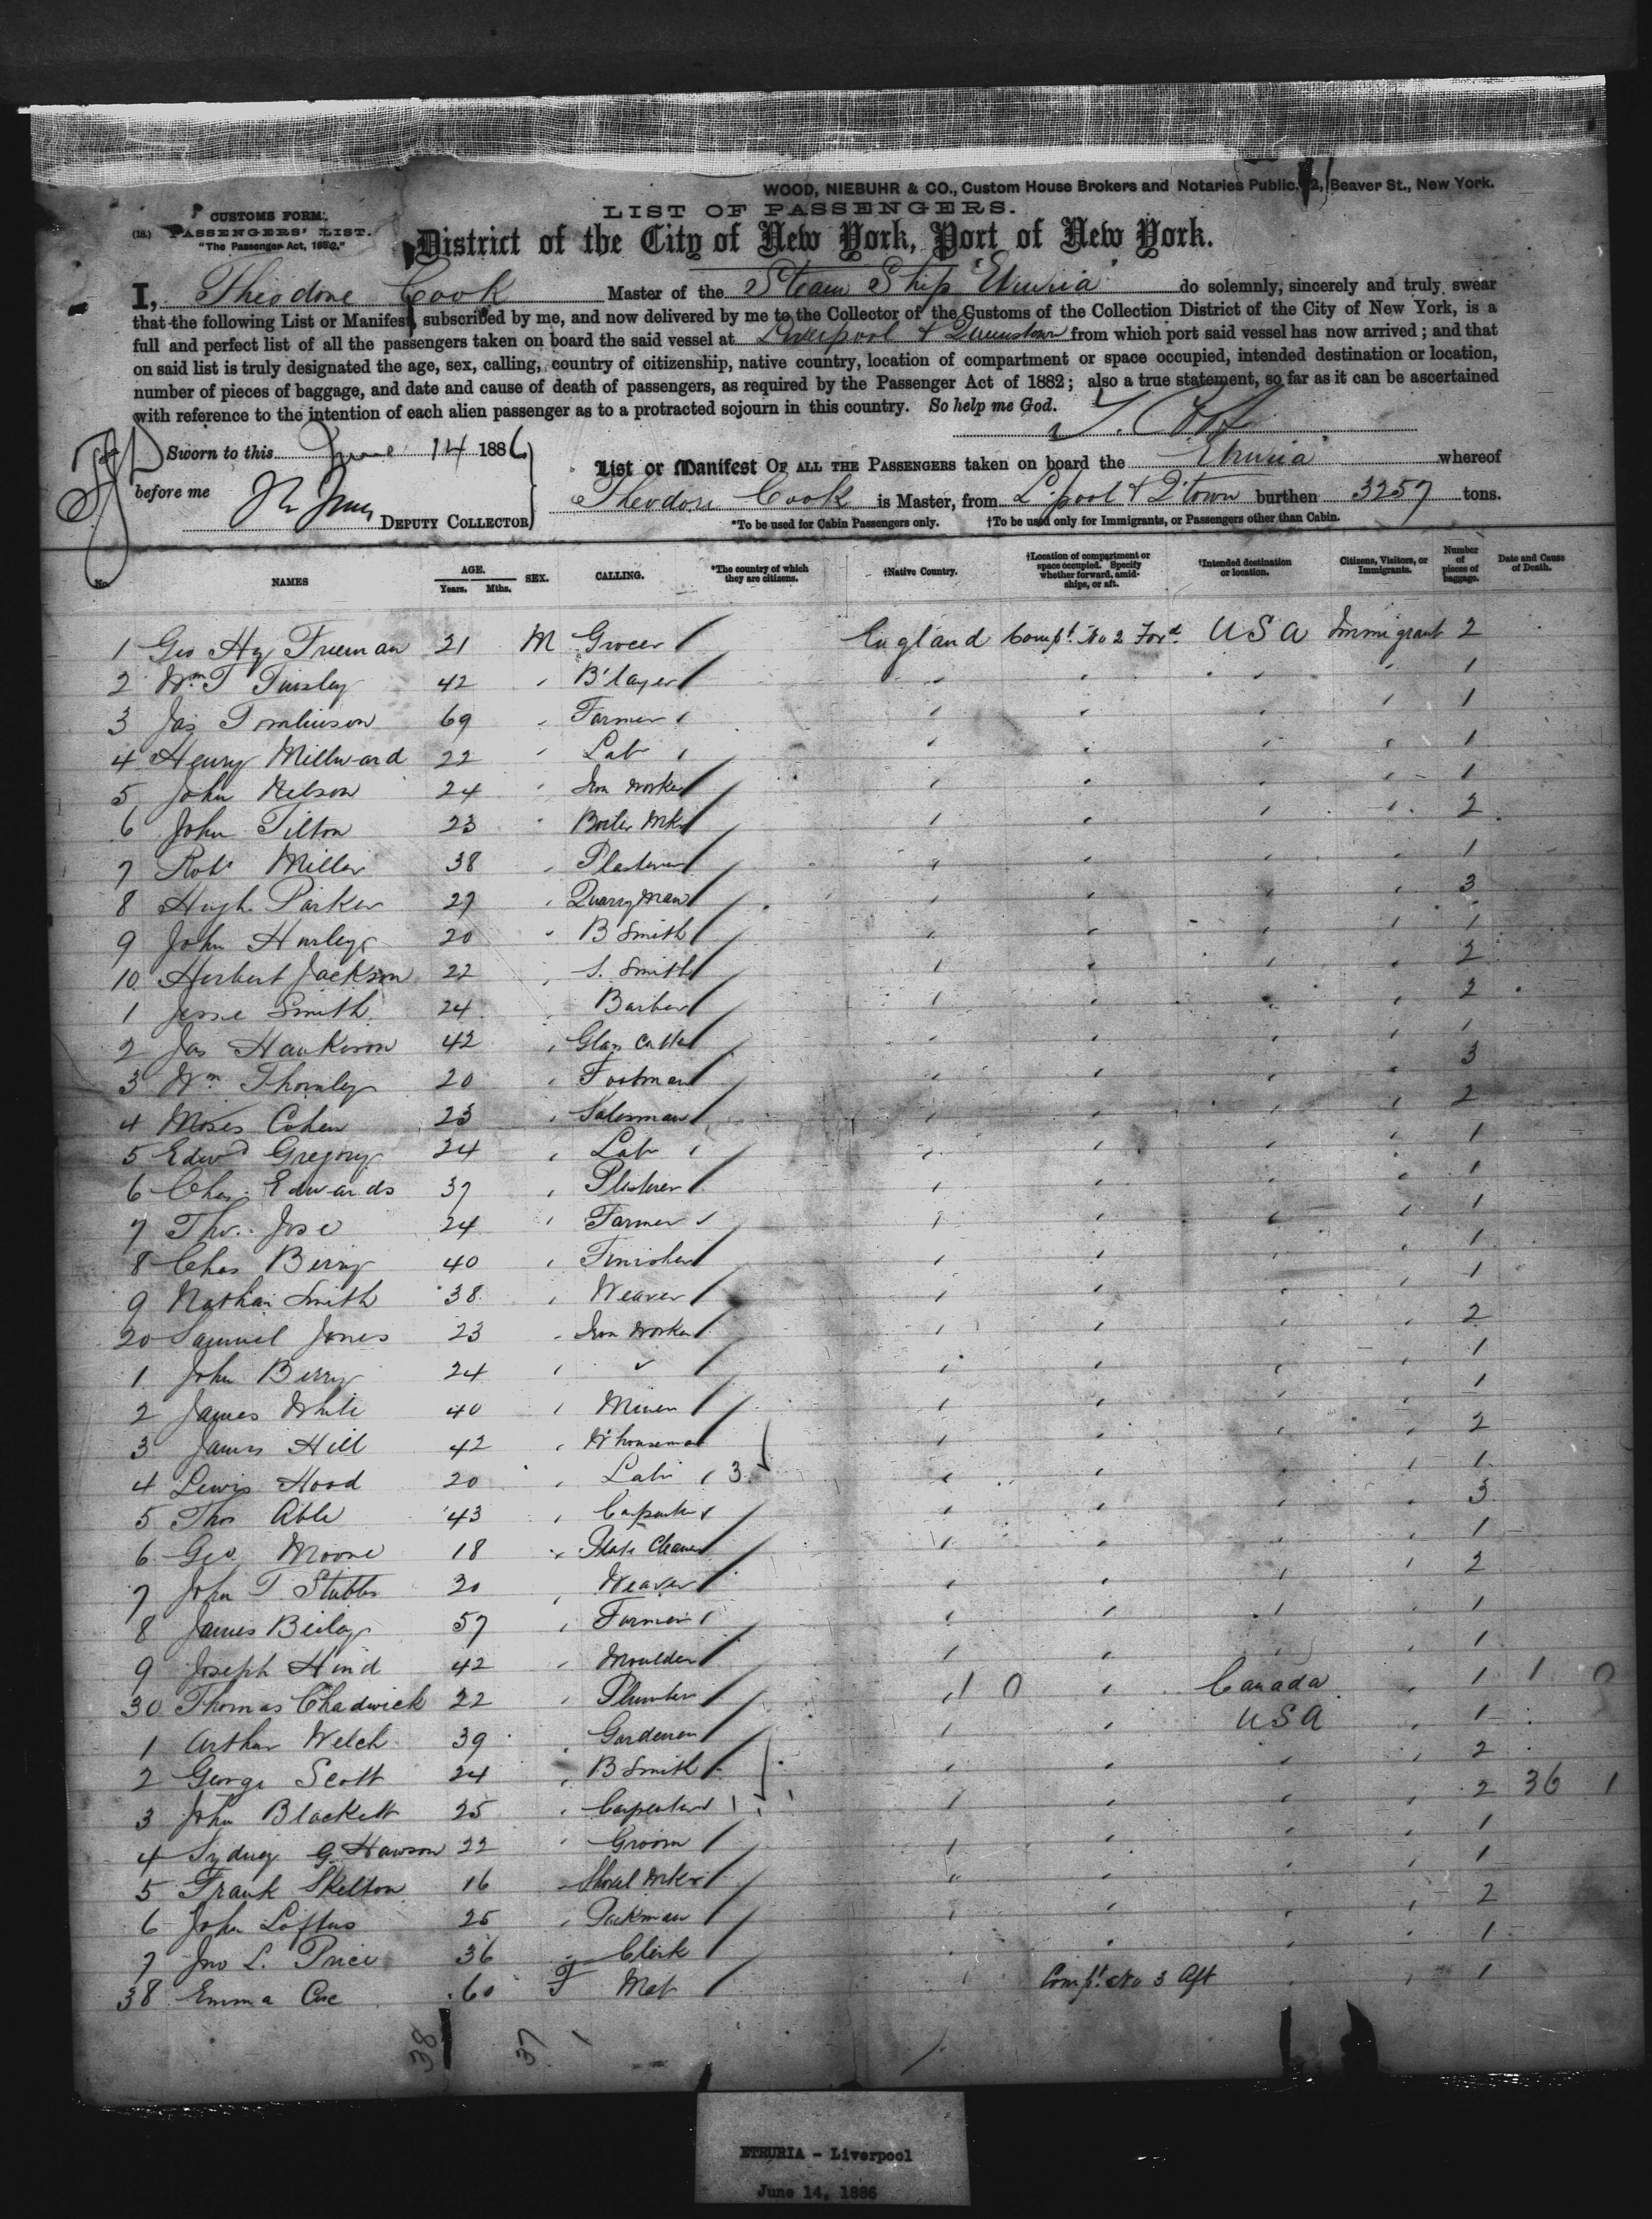 WOOD, NIEBUHR & CO., Custom House Brokers and Notaries Public, 2, Beaver St., New York.
LIST OF PASSENGERS.
CUSTOMS FORM.
(18.) PASSENGERS' LIST.
"The Passenger Act, 1882."
District of the City of New York, Port of New York.
I, Theodore Cook Master of the Steam Ship "Etruria" do solemnly, sincerely and truly swear
that the following List or Manifest, subscribed by me, and now delivered by me to the Collector of the Customs of the Collection District of the City of New York, is a
full and perfect list of all the passengers taken on board the said vessel at Liverpool & Queenstown from which port said vessel has now arrived; and that
on said list is truly designated the age, sex, calling, country of citizenship, native country, location of compartment or space occupied, intended destination or location,
number of pieces of baggage, and date and cause of death of passengers, as required by the Passenger Act of 1882; also a true statement, so far as it can be ascertained
with reference to the intention of each alien passenger as to a protracted sojourn in this country. So help me God.
T. Cook
Sworn to this June 14 1886
before me
DEPUTY COLLECTOR
List or Manifest OF ALL THE PASSENGERS taken on board the "Etruria" whereof
Theodore Cook is Master, from L'pool & Q'town burthen 3257 tons.
*To be used for Cabin Passengers only. †To be used only for Immigrants, or Passengers other than Cabin.
No. NAMES AGE. Years. Mths. SEX. CALLING. *The country of which they are citizens. †Native Country. †Location of compartment or space occupied. Specify whether forward, amidships, or aft. †Intended destination or location. Citizens, Visitors, or Immigrants. Number of pieces of baggage. Date and Cause of Death.
1 Geo Hy Freeman 21 M Grocer England Compt. No 2 Ford. USA Immigrant 2
2 Wm T Tinsley 42 B'layer 1
3 Jas Tomlinson 69 Farmer 1
4 Henry Millward 22 Labr 1
5 John Nelson 24 Iron Worker 1
6 John Tilton 23 Boiler Mkr 2
7 Robt Miller 38 Plasterer 1
8 Hugh Parker 27 Quarryman 3
9 John Hurley 20 B Smith 1
10 Herbert Jackson 22 S. Smith 2
1 Jesse Smith 24 Barber 2
2 Jas Hankinson 42 Glass Cutter 1
3 Wm Thornley 20 Footman 3
4 Moses Cohen 23 Salesman 2
5 Edwd Gregory 24 Labr 1
6 Chas. Edwards 37 Plasterer 1
7 Tho. Jose 24 Farmer 1
8 Chas Berry 40 Finisher 1
9 Nathan Smith 38 Weaver 1
20 Samuel Jones 23 Iron Worker 2
1 John Berry 24 1
2 James White 40 Miner 1
3 James Hill 42 W'houseman 2
4 Lewis Hood 20 Labr 3 1
5 Thos Able 43 Carpenter 3
6 Geo Moore 18 Plate Cleaner 1
7 John T. Stubbs 30 Weaver 2
8 James Beiley 57 Farmer 1
9 Joseph Hind 42 Moulder 1
30 Thomas Chadwick 22 Plumber 1 0 Canada 1 1 0
1 Arthur Welch 39 Gardener USA 1
2 George Scott 24 B Smith 2
3 John Blackett 25 Carpenter 2 36 1
4 Sydney G. Hawson 22 Groom 1
5 Frank Skelton 16 Shovel Mkr 1
6 John Loftus 25 Packman 2
7 Jno L. Price 36 Clerk 1
38 Emma Coe 60 F Mat Compt. No 3 Aft 1
38 37 1
ETRURIA - Liverpool
June 14, 1886